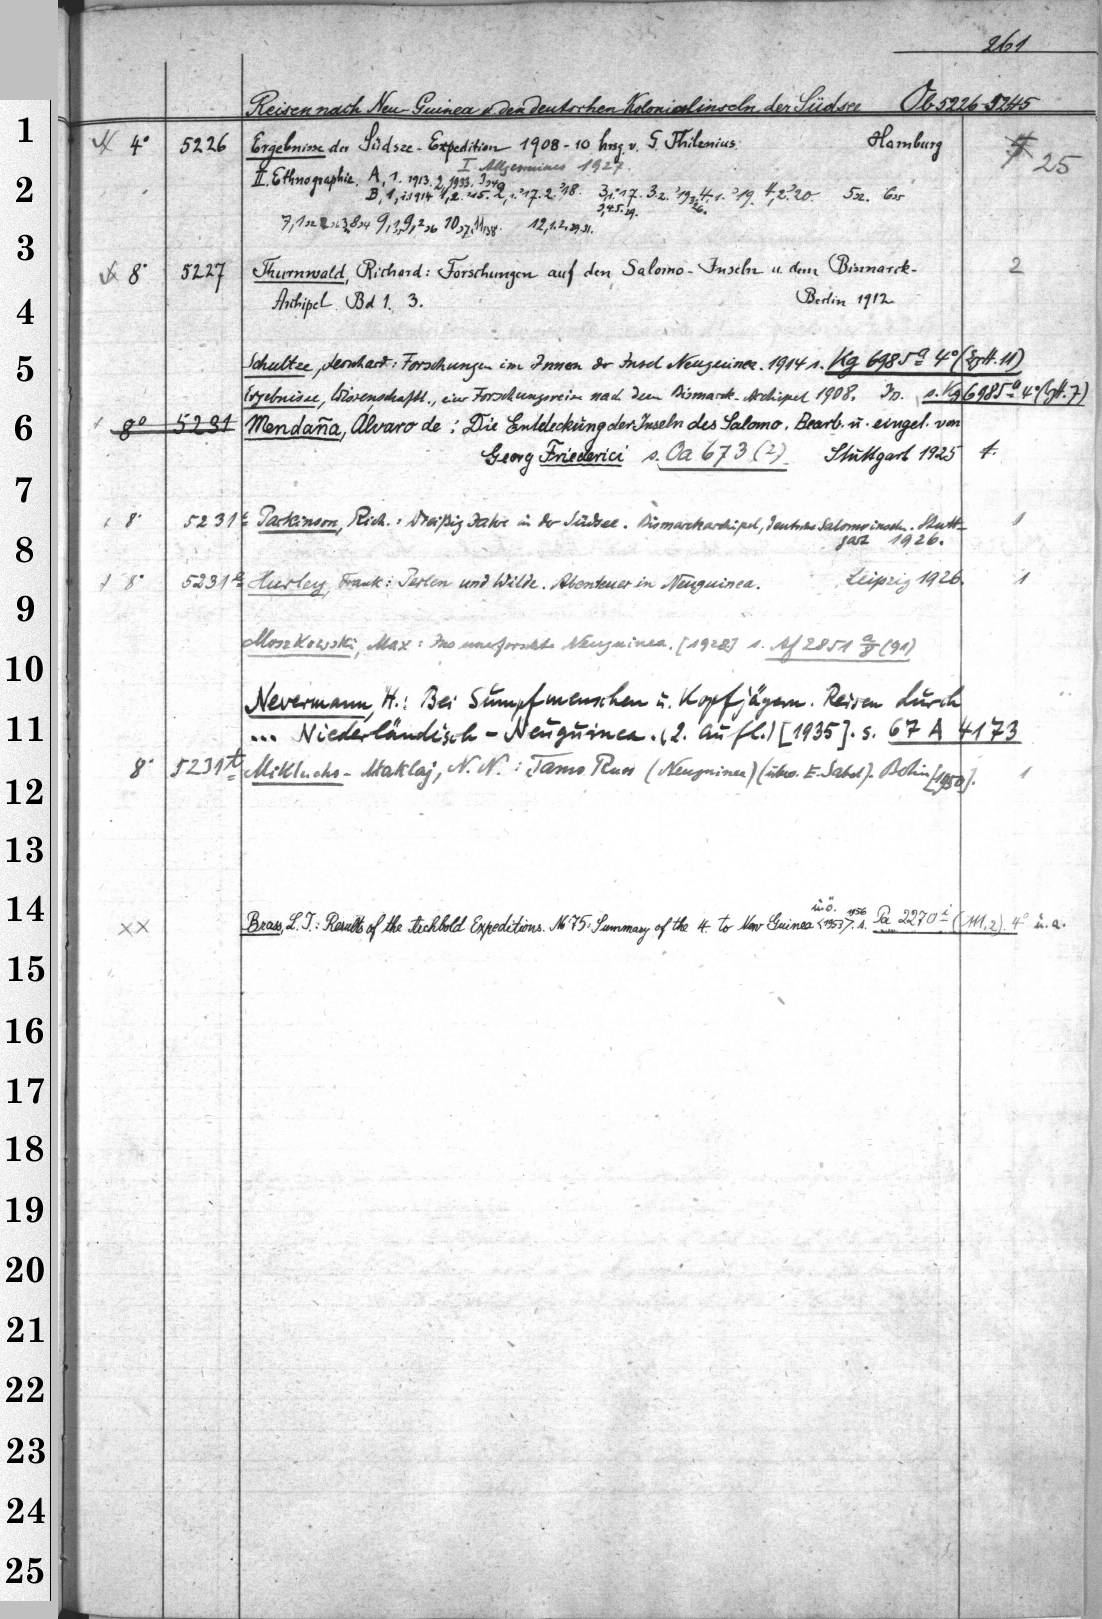 261
Reisen nach Neu-Guinea u. den deutschen Kolonialinseln der Südsee Ob 5226-5245
4° 5226 Ergebnisse der Südsee-Expedition 1908-10 hrsg. v. G. Thilenius. Hamburg 25
I Allgemeines 1927.
II. Ethnographie. A, 1. 1913. 2, 1933.
B, 1, 3. 17. 3 2. 4. 1. 19. 4, 2. 20.
12, 1. 2.
8° 5227 Thurnwald, Richard: Forschungen auf den Salomo-Inseln u. dem Bismarck- 2
Archipel Bd 1. 3. Berlin 1912
Schultze, Leonhard: Forschungen im Innern der Insel Neuguinea. 1914 s. Kg 6985 a 4° (Erg. H. 11)
Ergebnisse, Wissenschaftl., einer Forschungsreise nach dem Bismarck-Archipel 1908. s. Kg 6985 a 4° (Erg. H. 7)
8° 5231 Mendaña, Alvaro de: Die Entdeckung der Inseln des Salomo. Bearb. u. eingel. von
Georg Friederici s. Oa 673 (2) Stuttgart 1925 1.
8° 5231 Parkinson, Rich.: Dreißig Jahre in der Südsee. Bismarckarchipel, deutsche Salomoinseln. Stutt- 1
gart 1926.
8° 5231 a Hurley, Frank: Perlen und Wilde. Abenteuer in Neuguinea. Leipzig 1926. 1
Moszkowski, Max: Ins unerforschte Neuguinea. [1928] s. Af 2851 (91)
Nevermann, H.: Bei Sumpfmenschen u. Kopfjägern. Reisen durch
... Niederländisch-Neuguinea. (2. Aufl.) [1935]. s. 67 A 4173
8° 5231 t Miklucho-Maklaj, N. N.: Tamo Russ (Neuguinea) (übers. E. Sabel). Berlin [1950]. 1
u. ö.
XX Brass, L. J.: Results of the Archbold Expeditions. No 75: Summary of the 4. to New Guinea <1953>. 1956 s. Pa 2270 i (111,2). 4° u. a.
1
2
3
4
5
6
7
8
9
10
11
12
13
14
15
16
17
18
19
20
21
22
23
24
25